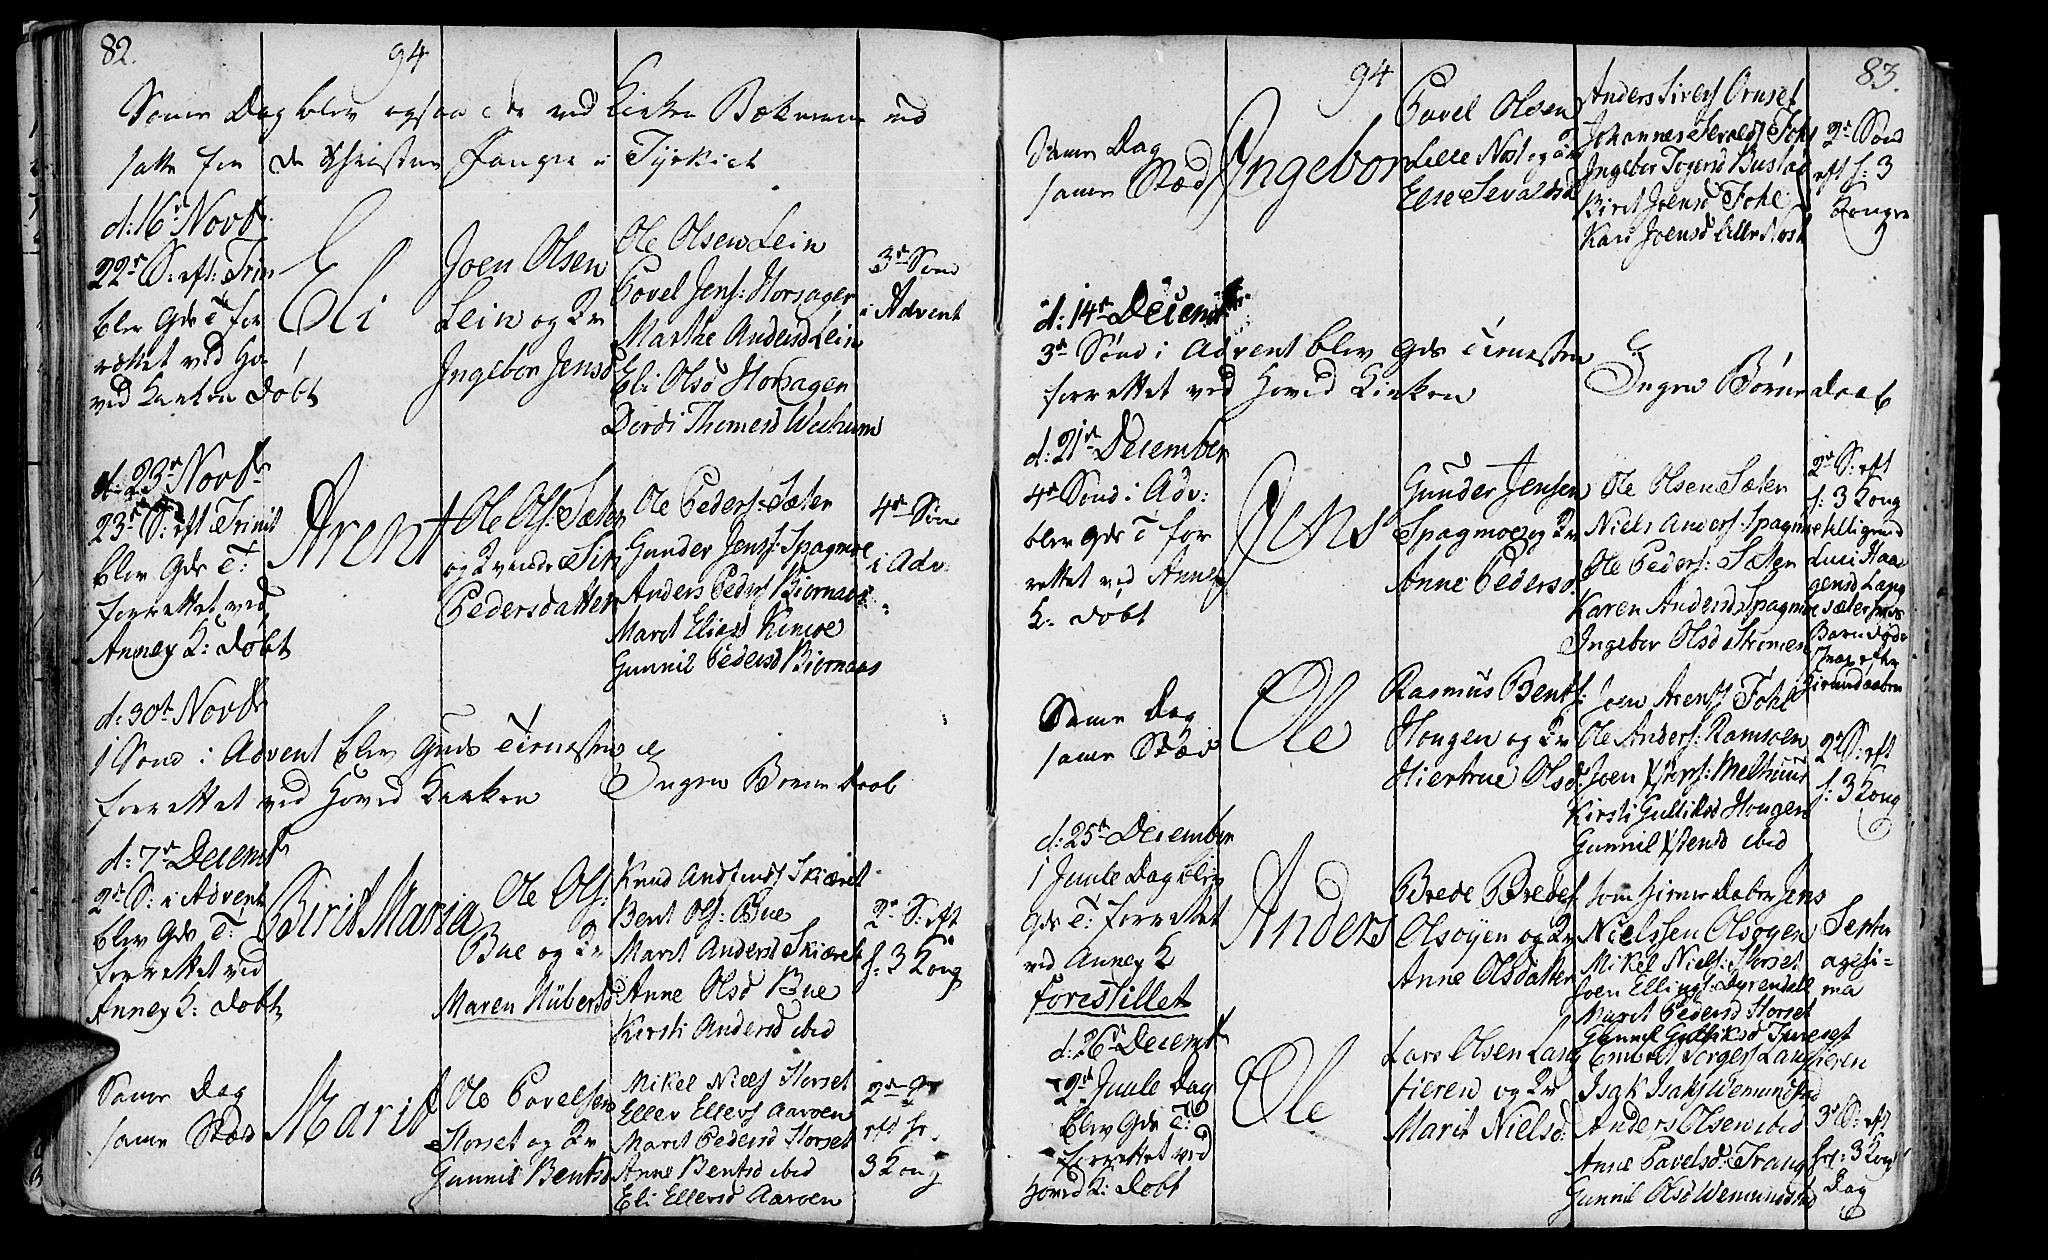 82.
94
Samme Dag blev ogsaa de ved Kirken Bekkener ud
satte for de Christne Fanger i Tyrkiet
d: 16de Novbr
22de S: eft: Trin
blev Gds T for
rettet ved Ho-
ved Kirken døbt
Eli
Joen Olsen
Lein og Kv
Ingebor Jensd
Ole Olsen Lein
Povel Jens: Horsager
Marthe Andersd Lein
Eli Olsd Horsagen
Dordi Thomesd
3de Sønd
i Advent
d: 23de Novbr
23de S: eft Trinit
blev Gds T:
forrettet ved
Annex K: døbt
Arent
Ole Ols: Sæter
og Kvinde Siri
Pedersdatter
Ole Peders: Sæter
Gunder Jens: Spagmoe
Anders Peders Biørnaas
Marit Eliesd Kimoe
Gunnil Pedersd Biørnaas
4de Søn
i Adv:
d: 30te Novbr
1 Sønd i Advent blev Guds Tieneste
forrettet ved Hoved Kirken
Ingen Børne Daab
d: 7de Decembr
2de S: i Advent
blev Gds T:
forrettet ved
Annex K: døbt
Birit Maria
Ole Ols:
Bue og Kv
Maren Hübertsd
Knud Andfinds Skiæret
Bent Ols: Bue
Marit Andersd Skiæret
Anne Olsd Bue
Kirsti Andersd ibid
2de S: eft
h: 3 Kong
Samme Dag
samme Stæd
Marit
Ole Povelsen
Horset og Kv
Gunnil Bentsd
Mikel Niels Horset
Eller Ellers Aaroen
Marit Pedersd Horset
Anne Bentsd ibid
Eli Ellersd Aaroen
2de S
eft h:
3 Kong
83.
94
Samme Dag
samme Stæd
Ingebor
Povel Olsen
Lille Nost og Kv
Else Sevaldsd
Anders Sivers Ornset
Johannes Sevalds Fohl
Ingebor Bustad
Birit Joensd Fohl
Kari Joensd Lille Nost
2de Sønd
eft h: 3
Konger
d: 14de Decembr
3de Sønd i Advent blev Gds Tieneste
forrettet ved Hoved Kirken
Ingen Børne Daab
d: 21de December
4de Sønd i Adv:
blev Gds T for
rettet ved Annex
K: døbt
Jens
Gunder Jensen
Spagmoe og Kv
Anne Pedersd:
Ole Olsen Sæter
Niels Anders: Spagmoe
Ole Peders: Sæter
Karen Andersd Spagmoe
Ingebor Olsd Strømen
2de S: eft
h: 3 Kong
tilligemed
Luci Haa
gensd Lang
sæter hvis
Barn døde
strax efter
Samme Dag
samme Stæd
Ole
Rasmus Bents:
Hougen og Kv
Hiertrue Olsd:
Joen Arents Fohl
Ole Anders: Ramsøen
Joen Melhuus
Kirsti Gulliksd Hougen
Gunnil ibid
2de S: eft
h: 3 Kong
d: 25de December
1 Juule Dag blev
Gds T: forrettet
ved Annex K
forestillet
Anders
Brede Bredes
Olsøyen og Kv
Anne Olsdatter
som hieme Døber Jens
Nielssen Olsøyen
Mikel Niels: Horset
Joen Ellings: Dyrendall
Marit Pedersd Horset
Gunnil Gulliksd
Septu
agesi-
ma
d: 26de Decembr
2de Juule Dag
blev Gds T:
forrettet ved
Hoved K: døbt
Ole
Lars Olsen Lang
fieren og Kv
Marit Nielsd:
Langfieren
Isak Isaks Wemundstad
Anders Olsen ibid
Anne Pavelsd: Trang
Gunnil Olsd Wemundstad
3de S: eft
h: 3 Kong
Dag